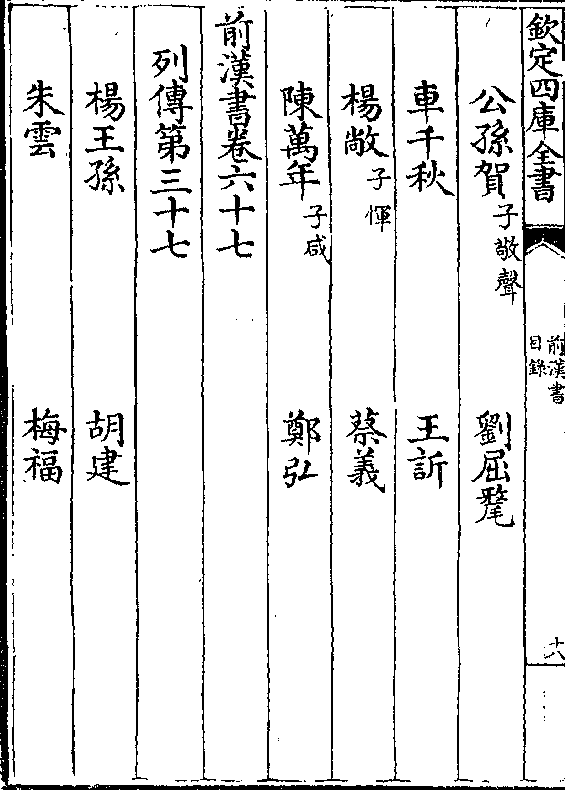 欽定四庫全書
前漢書
目錄
十六
公孫賀 子敬聲 劉屈氂
車千秋 王訢
楊敞 子惲 蔡義
陳萬年 子咸 鄭弘
前漢書卷六十七
列傳第三十七
楊王孫 胡建
朱雲 梅福